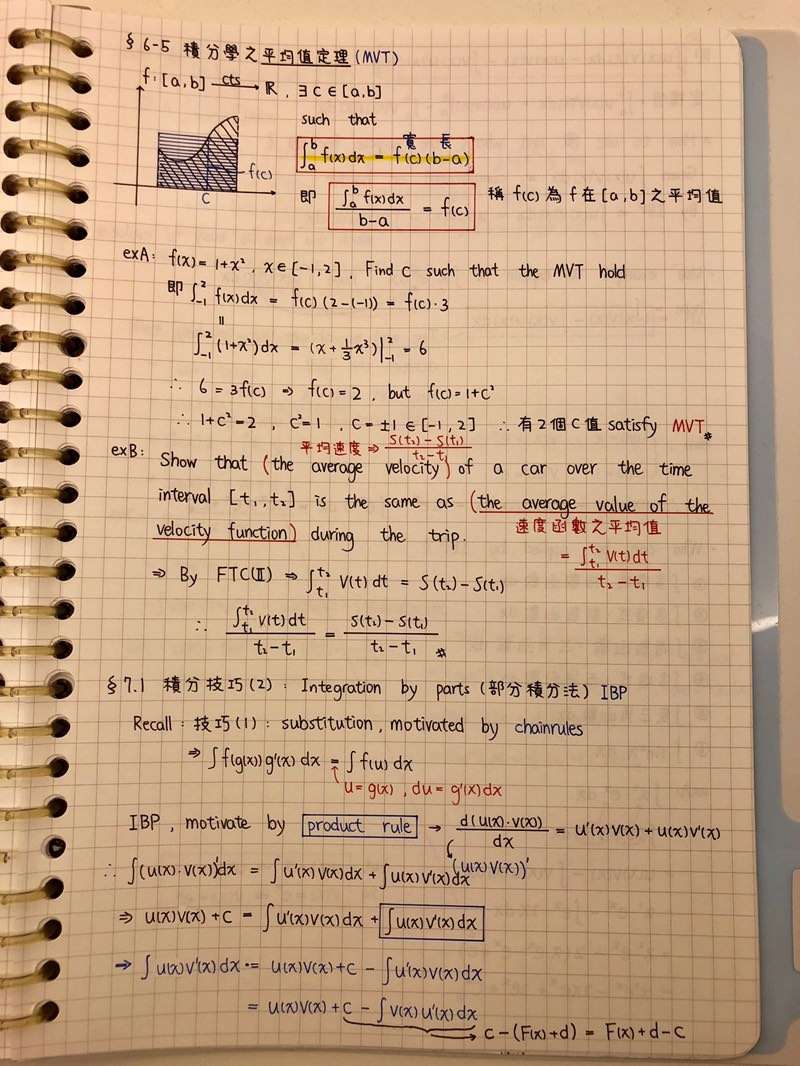 § 6-5 積分學之平均值定理 (MVT)
f: [a,b] cts→ ℝ, ∃ c ∈ [a,b]
such that
寬 長
∫_a^b f(x)dx = f(c)(b-a)
f(c)
c
即 ∫_a^b f(x)dx / b-a = f(c) 稱 f(c) 為 f 在 [a,b] 之平均值
exA: f(x) = 1+x², x ∈ [-1,2], Find c such that the MVT hold
即 ∫_-1^2 f(x)dx = f(c)(2-(-1)) = f(c)·3
||
∫_-1^2 (1+x²)dx = (x+⅓x³)|_-1^2 = 6
∴ 6 = 3f(c) ⇒ f(c) = 2, but f(c) = 1+c²
∴ 1+c² = 2, c² = 1, c = ±1 ∈ [-1,2] ∴ 有2個c值 satisfy MVT※
平均速度 ⇒ S(t₂)-S(t₁) / t₂-t₁
exB: Show that (the average velocity) of a car over the time
interval [t₁,t₂] is the same as (the average value of the
velocity function) during the trip.
速度函數之平均值
= ∫_t₁^t₂ V(t)dt / t₂-t₁
⇒ By FTC(II) ⇒ ∫_t₁^t₂ V(t)dt = S(t₂)-S(t₁)
∴ ∫_t₁^t₂ V(t)dt / t₂-t₁ = S(t₂)-S(t₁) / t₂-t₁ ※
§ 7.1 積分技巧(2): Integration by parts (部分積分法) IBP
Recall: 技巧(1): substitution, motivated by chainrules
⇒ ∫f(g(x))g'(x)dx = ∫f(u)dx
u = g(x), du = g'(x)dx
IBP, motivate by product rule → d(u(x)·v(x)) / dx = u'(x)v(x)+u(x)v'(x)
(u(x)v(x))'
∴ ∫(u(x)·v(x))'dx = ∫u'(x)v(x)dx + ∫u(x)v'(x)dx
⇒ u(x)v(x)+c = ∫u'(x)v(x)dx + ∫u(x)v'(x)dx
⇒ ∫u(x)v'(x)dx = u(x)v(x)+c - ∫u'(x)v(x)dx
= u(x)v(x)+c - ∫v(x)u'(x)dx
→ c-(F(x)+d) = F(x)+d-c